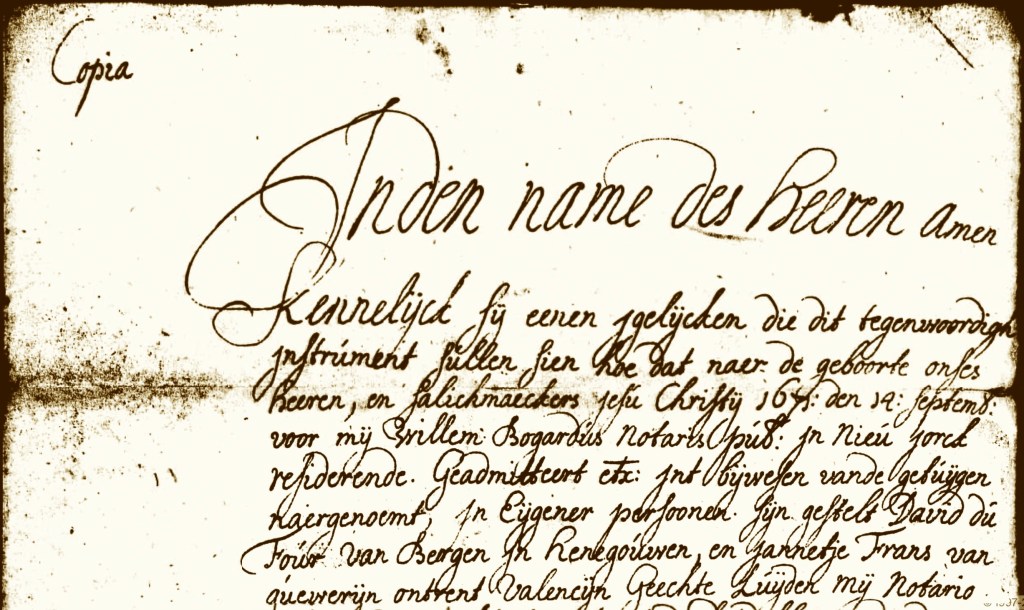 Copia
In den name des heeren Amen
Kennelijck sij eenen jgelijcken die dit tegenwoordigh
jnstrument sullen sien hoe dat naer de geboorte onses
heeren, en salichmaeckers jesu Christij den 14: septemb:
voor mij Willem Bogardus Notaris pub: jn Nieu jorck
residerende. Geadmitteert etc: jnt bijwesen vande getuijgen
naergenoemt, jn Eijgener persoonen sijn gestelt David du
Four van Bergen jn henegouwen, en jannetje Frans van
quewerijn ontrent Valencijn Geechte Luijden mij Notario